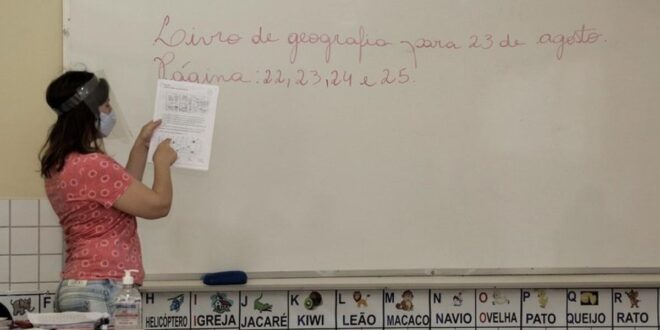 Livro de geografia para 23 de agosto.
Página: 22, 23, 24 e 25.
F H I J K L M N O P Q R
HELICÓPTERO IGREJA JACARÉ KIWI LEÃO MACACO NAVIO OVELHA PATO QUEIJO RATO